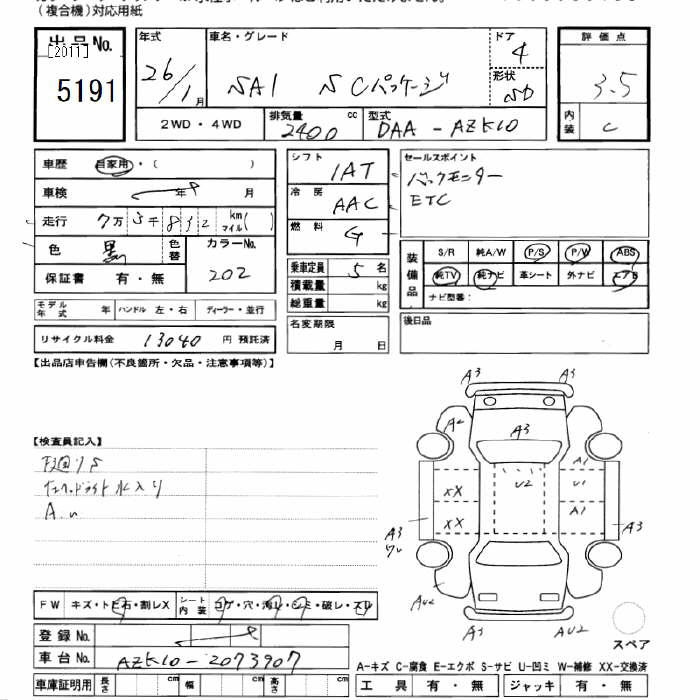 (複合機)対応用紙
出品No.
[2011]
5191
年式
26/1月
車名・グレード
SAI SCパッケージ
ドア
4
形状
SD
評価点
3.5
内装
C
2WD・4WD
排気量
2400 cc
型式
DAA-AZK10
車歴 自家用・( )
車検 年 月
走行 7万5千832 km マイル( )
色 黒 色替
カラーNo.
202
保証書 有・無
シフト
IAT
冷房
AAC
燃料
G
セールスポイント
バックモニター
ETC
乗車定員 5名
積載量 kg
総重量 kg
装備品
S/R 純A/W P/S P/W ABS
純TV 純ナビ 革シート 外ナビ エアB
ナビ型番:
モデル年式 年 ハンドル 左・右 ディーラー・並行
名変期限
月 日
後日品
リサイクル料金 13040 円 預託済
【出品店申告欄(不良箇所・欠品・注意事項等)】
A3 A3
A2 A3
【検査員記入】
下廻りS
水入り
A.U
A1
XX U2 U1
XX A1
A3 A3
AU2
A3 AU2
FW キズ・トビ石・割レX
シート内装 コゲ・穴・汚レ・シミ・破レ・スレ
登録No.
車台No. AZK10-2073907
スペア
A-キズ C-腐食 E-エクボ S-サビ U-凹ミ W-補修 XX-交換済
車庫証明用 長さ cm 幅 cm 高さ cm
工具 有・無 ジャッキ 有・無